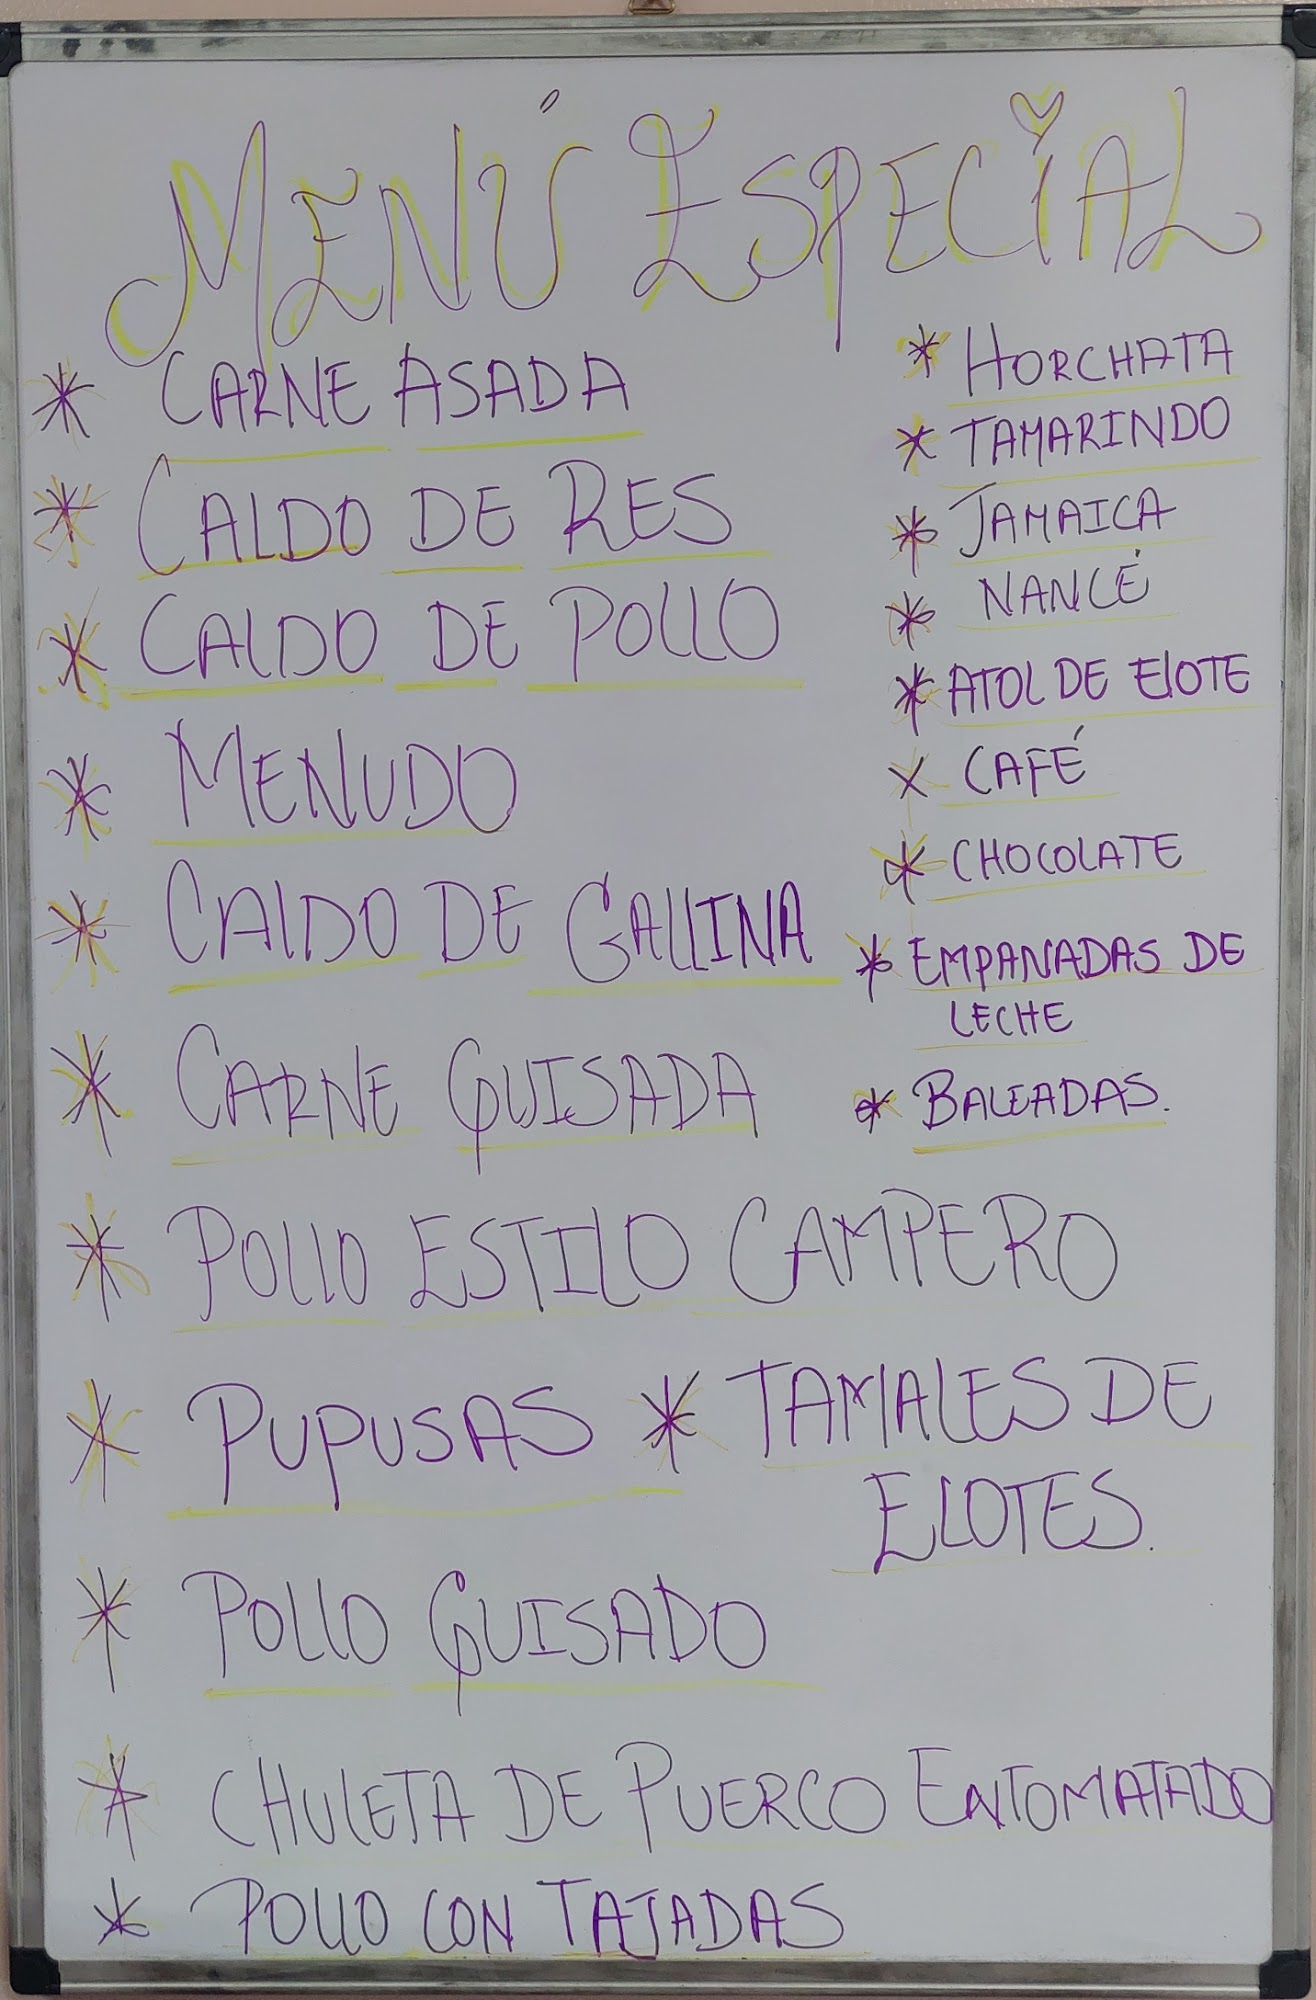 MENÚ ESPECIAL
* CARNE ASADA
* CALDO DE RES
* CALDO DE POLLO
* MENUDO
* CALDO DE GALLINA
* CARNE GUISADA
* HORCHATA
* TAMARINDO
* JAMAICA
* NANCÉ
* ATOL DE ELOTE
* CAFÉ
* CHOCOLATE
* EMPANADAS DE
LECHE
* BALEADAS.
* POLLO ESTILO CAMPERO
* PUPUSAS * TAMALES DE
ELOTES.
* POLLO GUISADO
* CHULETA DE PUERCO ENTOMATADO
* POLLO CON TAJADAS